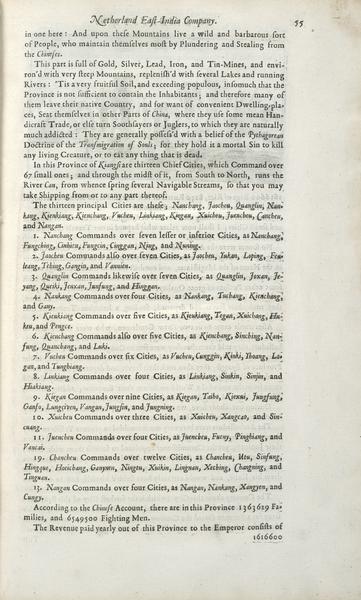 Netherland East-India Company. 55
in one here: And upon these Mountains live a wild and barbarous sort
of People, who maintain themselves most by Plundering and Stealing from
the Chineses.
This part is full of Gold, Silver, Lead, Iron, and Tin-Mines, and envi-
ron'd with very steep Mountains, replenish'd with several Lakes and running
Rivers: 'Tis a very fruitful Soil, and exceeding populous, insomuch that the
Province is not sufficient to contain the Inhabitants; and therefore many of
them leave their native Country, and for want of convenient Dwelling-pla-
ces, Seat themselves in other Parts of China, where they use some mean Han-
dicraft Trade, or else turn Soothsayers or Juglers, to which they are naturally
much addicted: They are generally possess'd with a belief of the Pythagorean
Doctrine of the Transmigration of Souls; for they hold it a mortal Sin to kill
any living Creature, or to eat any thing that is dead.
In this Province of Kiangsi are thirteen Chief Cities, which Command over
67 small ones; and through the midst of it, from South to North, runs the
River Can, from whence spring several Navigable Streams, so that you may
take Shipping from or to any part thereof.
The thirteen principal Cities are these; Nanchang, Jaocheu, Quangsin, Nan-
kang, Kieukiang, Kienchang, Vucheu, Linkiang, Kiegan, Xuicheu, Juencheu, Cancheu,
and Nangan.
1. Nanchang Commands over seven lesser or inferior Cities, as Nanchang,
Fungching, Cinhieu, Fungcin, Cinggan, Ning, and Nuning.
2. Jaocheu Commands also over seven Cities, as Jaocheu, Yukan, Loping, Feu-
leang, Tehing, Gangin, and Vannien.
3. Quangsin Commands likewise over seven Cities, as Quangsin, Joxan, Je-
yang, Queiki, Jenxan, Junfung, and Hinggan.
4. Nankang Commands over four Cities, as Nankang, Tuchang, Kienchang,
and Gany.
5. Kieukiang Commands over five Cities, as Kieukiang, Tegan, Xuichang, Hu-
keu, and Pengce.
6. Kienchang Commands also over five Cities, as Kienchang, Sinching, Nan-
fung, Quanchang, and Luki.
7. Vucheu Commands over six Cities, as Vucheu, Cunggin, Kinki, Yhoang, Lo-
gan, and Tunghiang.
8. Linkiang Commands over four Cities, as Linkiang, Sinkin, Sinyin, and
Hiakiang.
9. Kiegan Commands over nine Cities, as Kiegan, Taiho, Kiexui, Jungfung,
Ganfo, Lungciven, Vangan, Jungsin, and Jungning.
10. Xuicheu Commands over three Cities, as Xuicheu, Xangcao, and Sin-
cuang.
11. Juencheu Commands over four Cities, as Juencheu, Fueny, Pinghiang, and
Vancai.
19. Chancheu Commands over twelve Cities, as Chancheu, Utu, Sinfung,
Hingque, Hoeichang, Ganyuen, Ningtu, Xuikin, Lingnan, Xeching, Changning, and
Tingnan.
13. Nangan Commands over four Cities, as Nangan, Nankang, Xangyeu, and
Cungy.
According to the Chinese Account, there are in this Province 1363629 Fa-
milies, and 6549500 Fighting Men.
The Revenue paid yearly out of this Province to the Emperor consists of
1616600